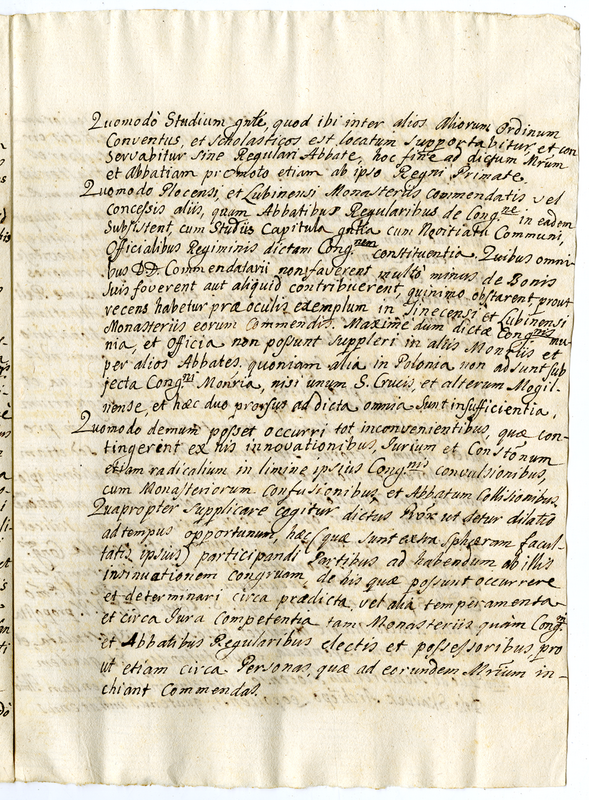 Quomodò Studium gnãle, quod ibi inter alios Aliorum Ordinum
Conventus, et Scholasticos est locatum Supportabitur, et con
Servabitur sine Regulari Abbate, hoc fine ad dictum Mrium
et Abbatiam promoto etiam ab ipso Regni Primate.
Quomodo Plocensi, et Lubinensi Monasteriis commendatis vel
concessis aliis, quam Abbatibus Regularibus de Congne in eadem
Subsistent, cum Studiis Capitula gnãlia cum Novitiatu Communi,
Officialibus Regiminis dictam Congnem constituentia. Quibus omni-
bus DD. Commendatarii non faverent multò minus de Bonis
suis foverent aut aliquid contribuerent, quinimo obstarent, prout
recens habetur præ oculis exemplum in Sinecensi et Lubinensi
Monasteriis eorum Commendis. Maxime dum dictæ Congnis mu-
nia, et officia non possunt Suppleri in aliis Monriis et
per alios Abbates. quoniam alia in Polonia non adsunt sub
jecta Congni Monria, nisi unum S. Crucis, et alterum Mogil-
nense, et hæc duo prorsus ad dicta omnia Sunt insufficientia.
Quomodo demum posset occurri tot inconvenientibus, quæ con-
tingerent ex his innovationibus, Jurium et Constõnum
etiam radicalium in limine ipsius Congnis convulsionibus,
cum Monasteriorum Confusionibus et Abbatum Collisionibus
Quapropter Supplicare cogitur dictus Prõr ut detur dilatio
ad tempus opportunum, hæc (quæ sunt extra sphæram facul-
tatis ipsius) participandi Partibus ad habendum ab illis
insinuationem congruam de his quæ possunt occurrere
et determinari circa prædicta, vel alia temperamenta
et circa Jura Competentia tam Monasteriis quam Congni
et Abbatibus Regularibus electis et possessoribus, pro
ut etiam circa Personas, quæ ad eorundem Mrium in-
hiant Commendas.